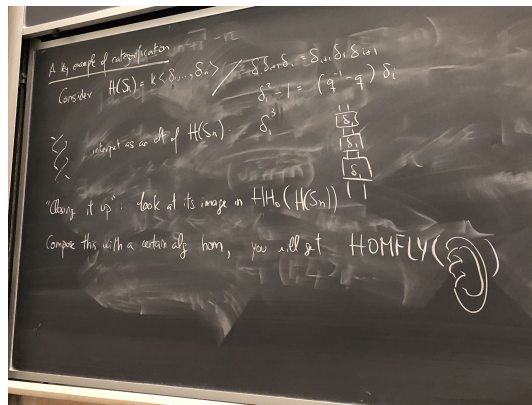 A key example of categorification
Consider H(S_n) = k<δ_1,...,δ_n> / δ_i δ_{i+1} δ_i = δ_{i+1} δ_i δ_{i+1}
δ_i^2 - 1 = (q^{-1} - q) δ_i
interpret as an elt of H(S_n).
δ_i^3
δ_1
δ_1
δ_1
"Closing it up": look at its image in HH_0(H(S_n))
Compose this with a certain alg hom, you will get HOMFLY( )